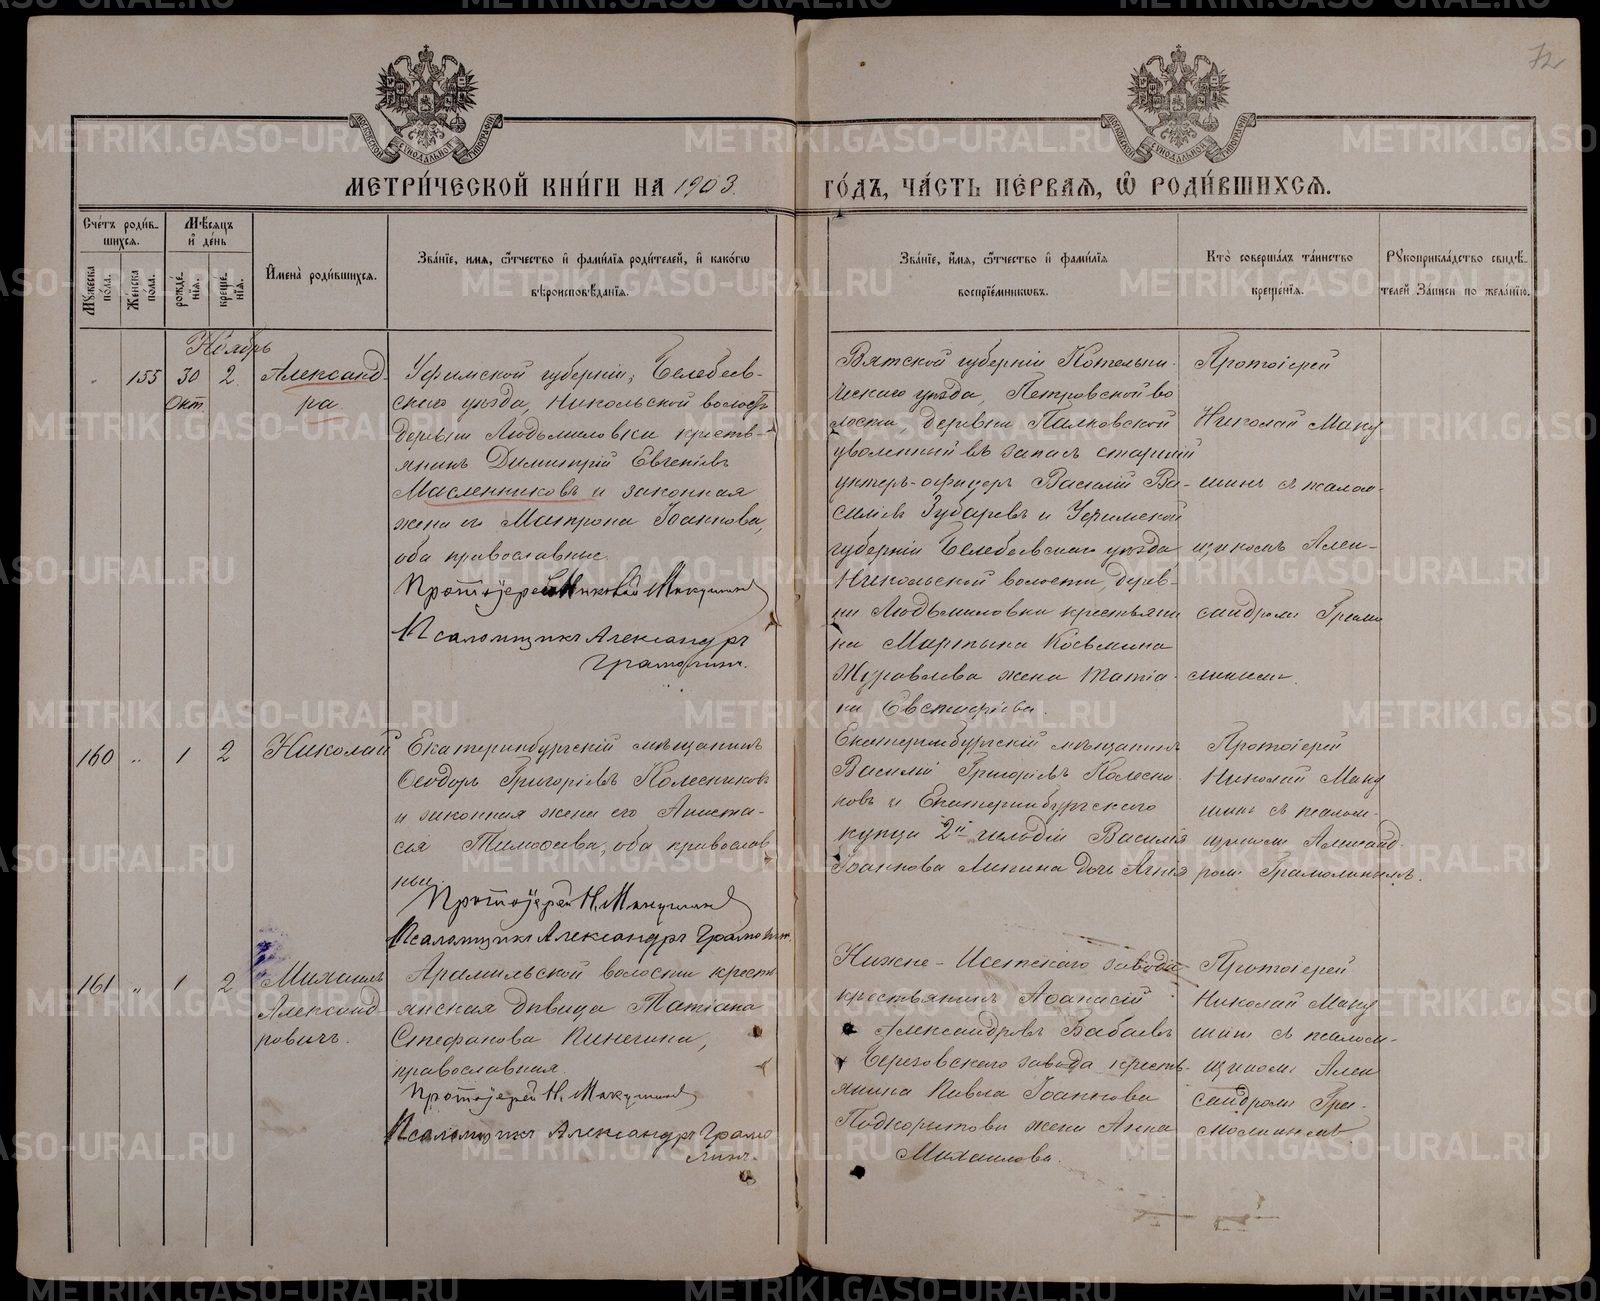 72
МЕТРИЧЕСКОЙ КНИГИ НА 1903.
ГОДЪ, ЧАСТЬ ПЕРВАЯ, Ѿ РОДИВШИХСЯ.
Счетъ родившихся.
Мужеска пола.
Женска пола.
Мѣсяцъ и день
рожденія.
крещенія.
Имена родившихся.
Званіе, имя, отчество и фамилія родителей, и какого
вѣроисповѣданія.
Званіе, имя, отчество и фамилія
воспріемниковъ.
Кто совершалъ таинство
крещенія.
Рукоприкладство свидѣ-
телей записи по желанію.
Ноябрь
155
30
Окт.
2
Александ-
ра.
Уфимской губерніи, Белебеев-
скаго уѣзда, Никольской волости
деревни Людьмиловки крестья-
янинъ Димитрій Евгеніевъ
Масленниковъ и законная
жена его Матрона Іоаннова,
оба православные.
Протоіерей Николай Макушинъ
Псаломщикъ Александръ
Грамолинъ.
Вятской губерніи Котельни-
ческаго уѣзда, Петровской во
лости, деревни Палковской
уволенный въ запасъ старшій
унтеръ-офицеръ Василій Ва-
силіевъ Зубаревъ и Уфимской
губерніи Белебеевскаго уѣзда
Никольской волости, дерев-
ни Людьмиловки крестьяни
на Мартына Косьмина
Журавлева жена Татіа-
на
Протоіерей
Николай Маку
шинъ съ псалом-
щикомъ Алек-
сандромъ Грамо
линымъ.
160
"
1
2
Николай
Екатеринбургскій мѣщанинъ
Ѳеодоръ Григоріевъ Колесниковъ
и законная жена его Анаста-
сія Тимоѳеева, оба православ
ные.
Протоіерей Н. Макушинъ
Псаломщикъ Александръ Грамолинъ.
Екатеринбургскій мѣщанинъ
Василій Григоріевъ Колесни-
ковъ и Екатеринбургскаго
купца 2й гильдіи Василія
Іоаннова Линина дочь Агнія
Протоіерей
Николай Маку
шинъ съ псалом-
щикомъ Александ-
ромъ Грамолинымъ.
161
"
1
2
Михаилъ
Александ-
ровичъ.
Арамильской волости кресть
янская дѣвица Татіана
Стефанова Пинегина,
православная.
Протоіерей Н. Макушинъ
Псаломщикъ Александръ Грамо
линъ.
Нижне-Исетскаго завода
крестьянинъ Аѳанасій
Александровъ Бабаевъ
и Березовскаго завода кресть-
янина Павла Іоаннова
Подкорытова жена Анна
Михаилова.
Протоіерей
Николай Маку
шинъ съ псалом-
щикомъ Алек
сандромъ Гра-
молинымъ.
METRIKI.GASO-URAL.RU